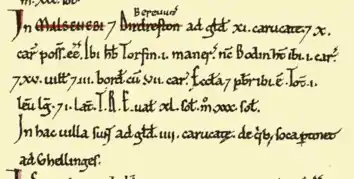 Berewit
In MALSENEBI 7 Andreston ad glđ XI. carucate. 7 X.
car̃ poss̃. eẽ. Ibi hƀ Torfin. I. maner̃. nc̃ Bodin hƀ ibi. I. car̃.
7 XV. uiłłꝭ 7 III. borđ cũ VII. car̃. Ecclã 7 pƀr ibi. ẽ. Toc̃. I.
leũ lg̃. 7 I. lat̃. T. R. E. uał XL. soł. m̊ XXX. soł.
In hac uilla sun̄ ad glđ IIII. carucate. de qⁱƀ; soca ꝑtinet
ad Ghellinges.